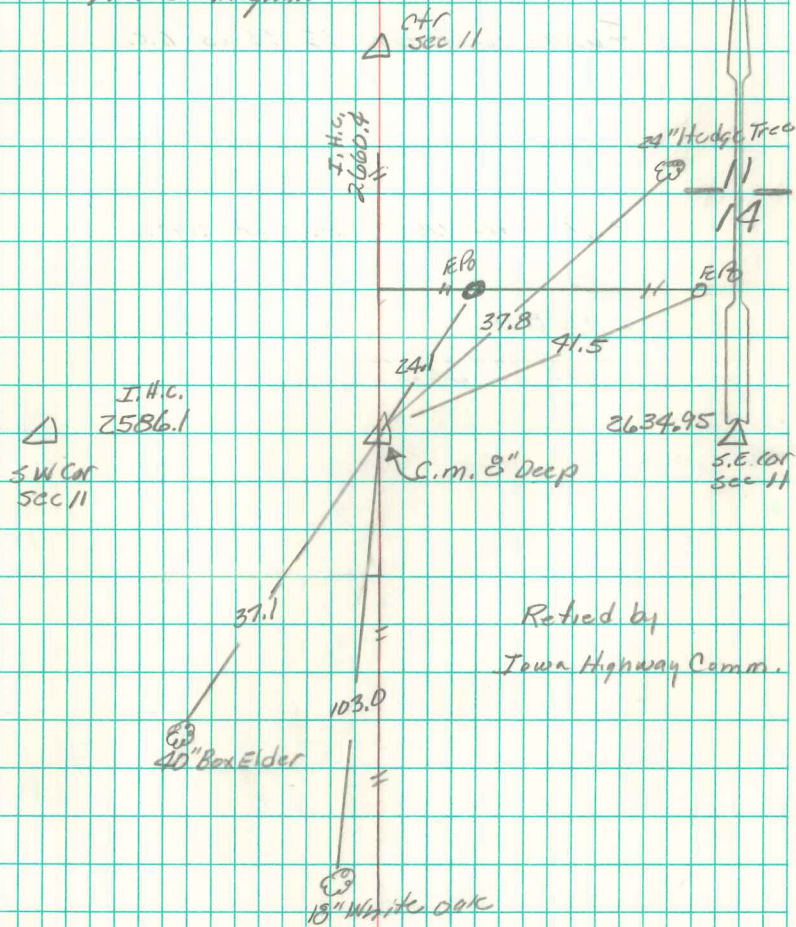 Ctr
Sec 11
I.H.C.
2660.4
24" Hedge Tree
11
14
37.8
41.5
24.1
I.H.C.
2586.1
2634.95
S.W Cor
Sec 11
C.M. 8" Deep
S.E. Cor
Sec 11
37.1
Retied by
Iowa Highway Comm.
103.0
40" Box Elder
18" White Oak